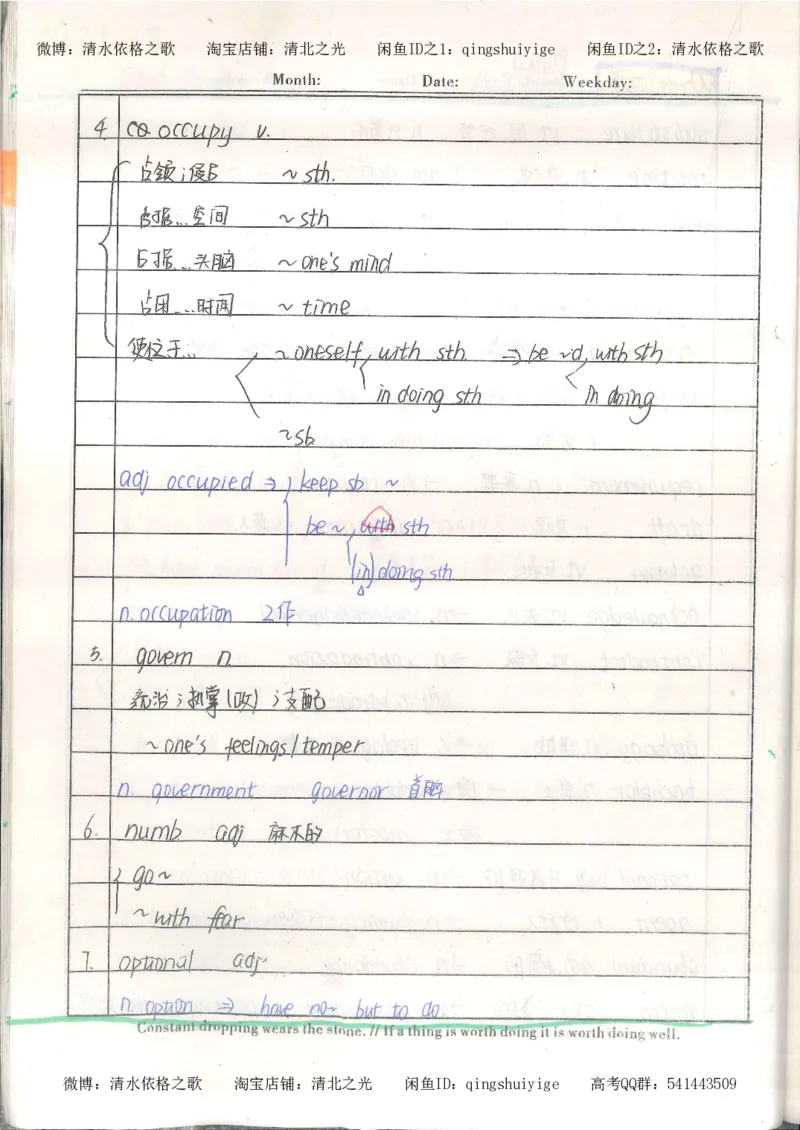 微博：清水依格之歌 淘宝店铺：清北之光 闲鱼ID之1：qingshuiyige 闲鱼ID之2：清水依格之歌
Month: Date: Weekday:
4. occupy v.
占领；侵占 ~ sth.
占据…空间 ~ sth
占据…头脑 ~ one's mind
占用…时间 ~ time
使位于… ~ oneself, with sth. ⇒ be ~d, with sth
in doing sth in doing
~sb
adj occupied ⇒ keep sb ~
be ~, with sth
(in) doing sth
n. occupation 工作
5. govern n
统治；执掌(政)；支配
~ one's feelings/temper
n. government governor 首脑
6. numb adj 麻木的
go ~
~ with fear
7. optional adj.
n. option ⇒ have no ~ but to do.
Constant dropping wears the stone. // If a thing is worth doing it is worth doing well.
微博：清水依格之歌 淘宝店铺：清北之光 闲鱼ID：qingshuiyige 高考QQ群：541443509